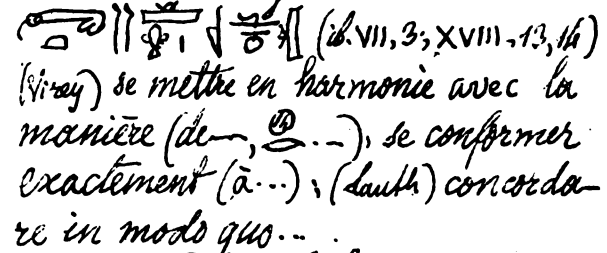 (ib. VII, 3; XVIII, 13, 14)
(Virey) se mettre en harmonie avec la
manière (de—, ...), se conformer
exactement (à...); (Lauth) concorda-
re in modo quo...